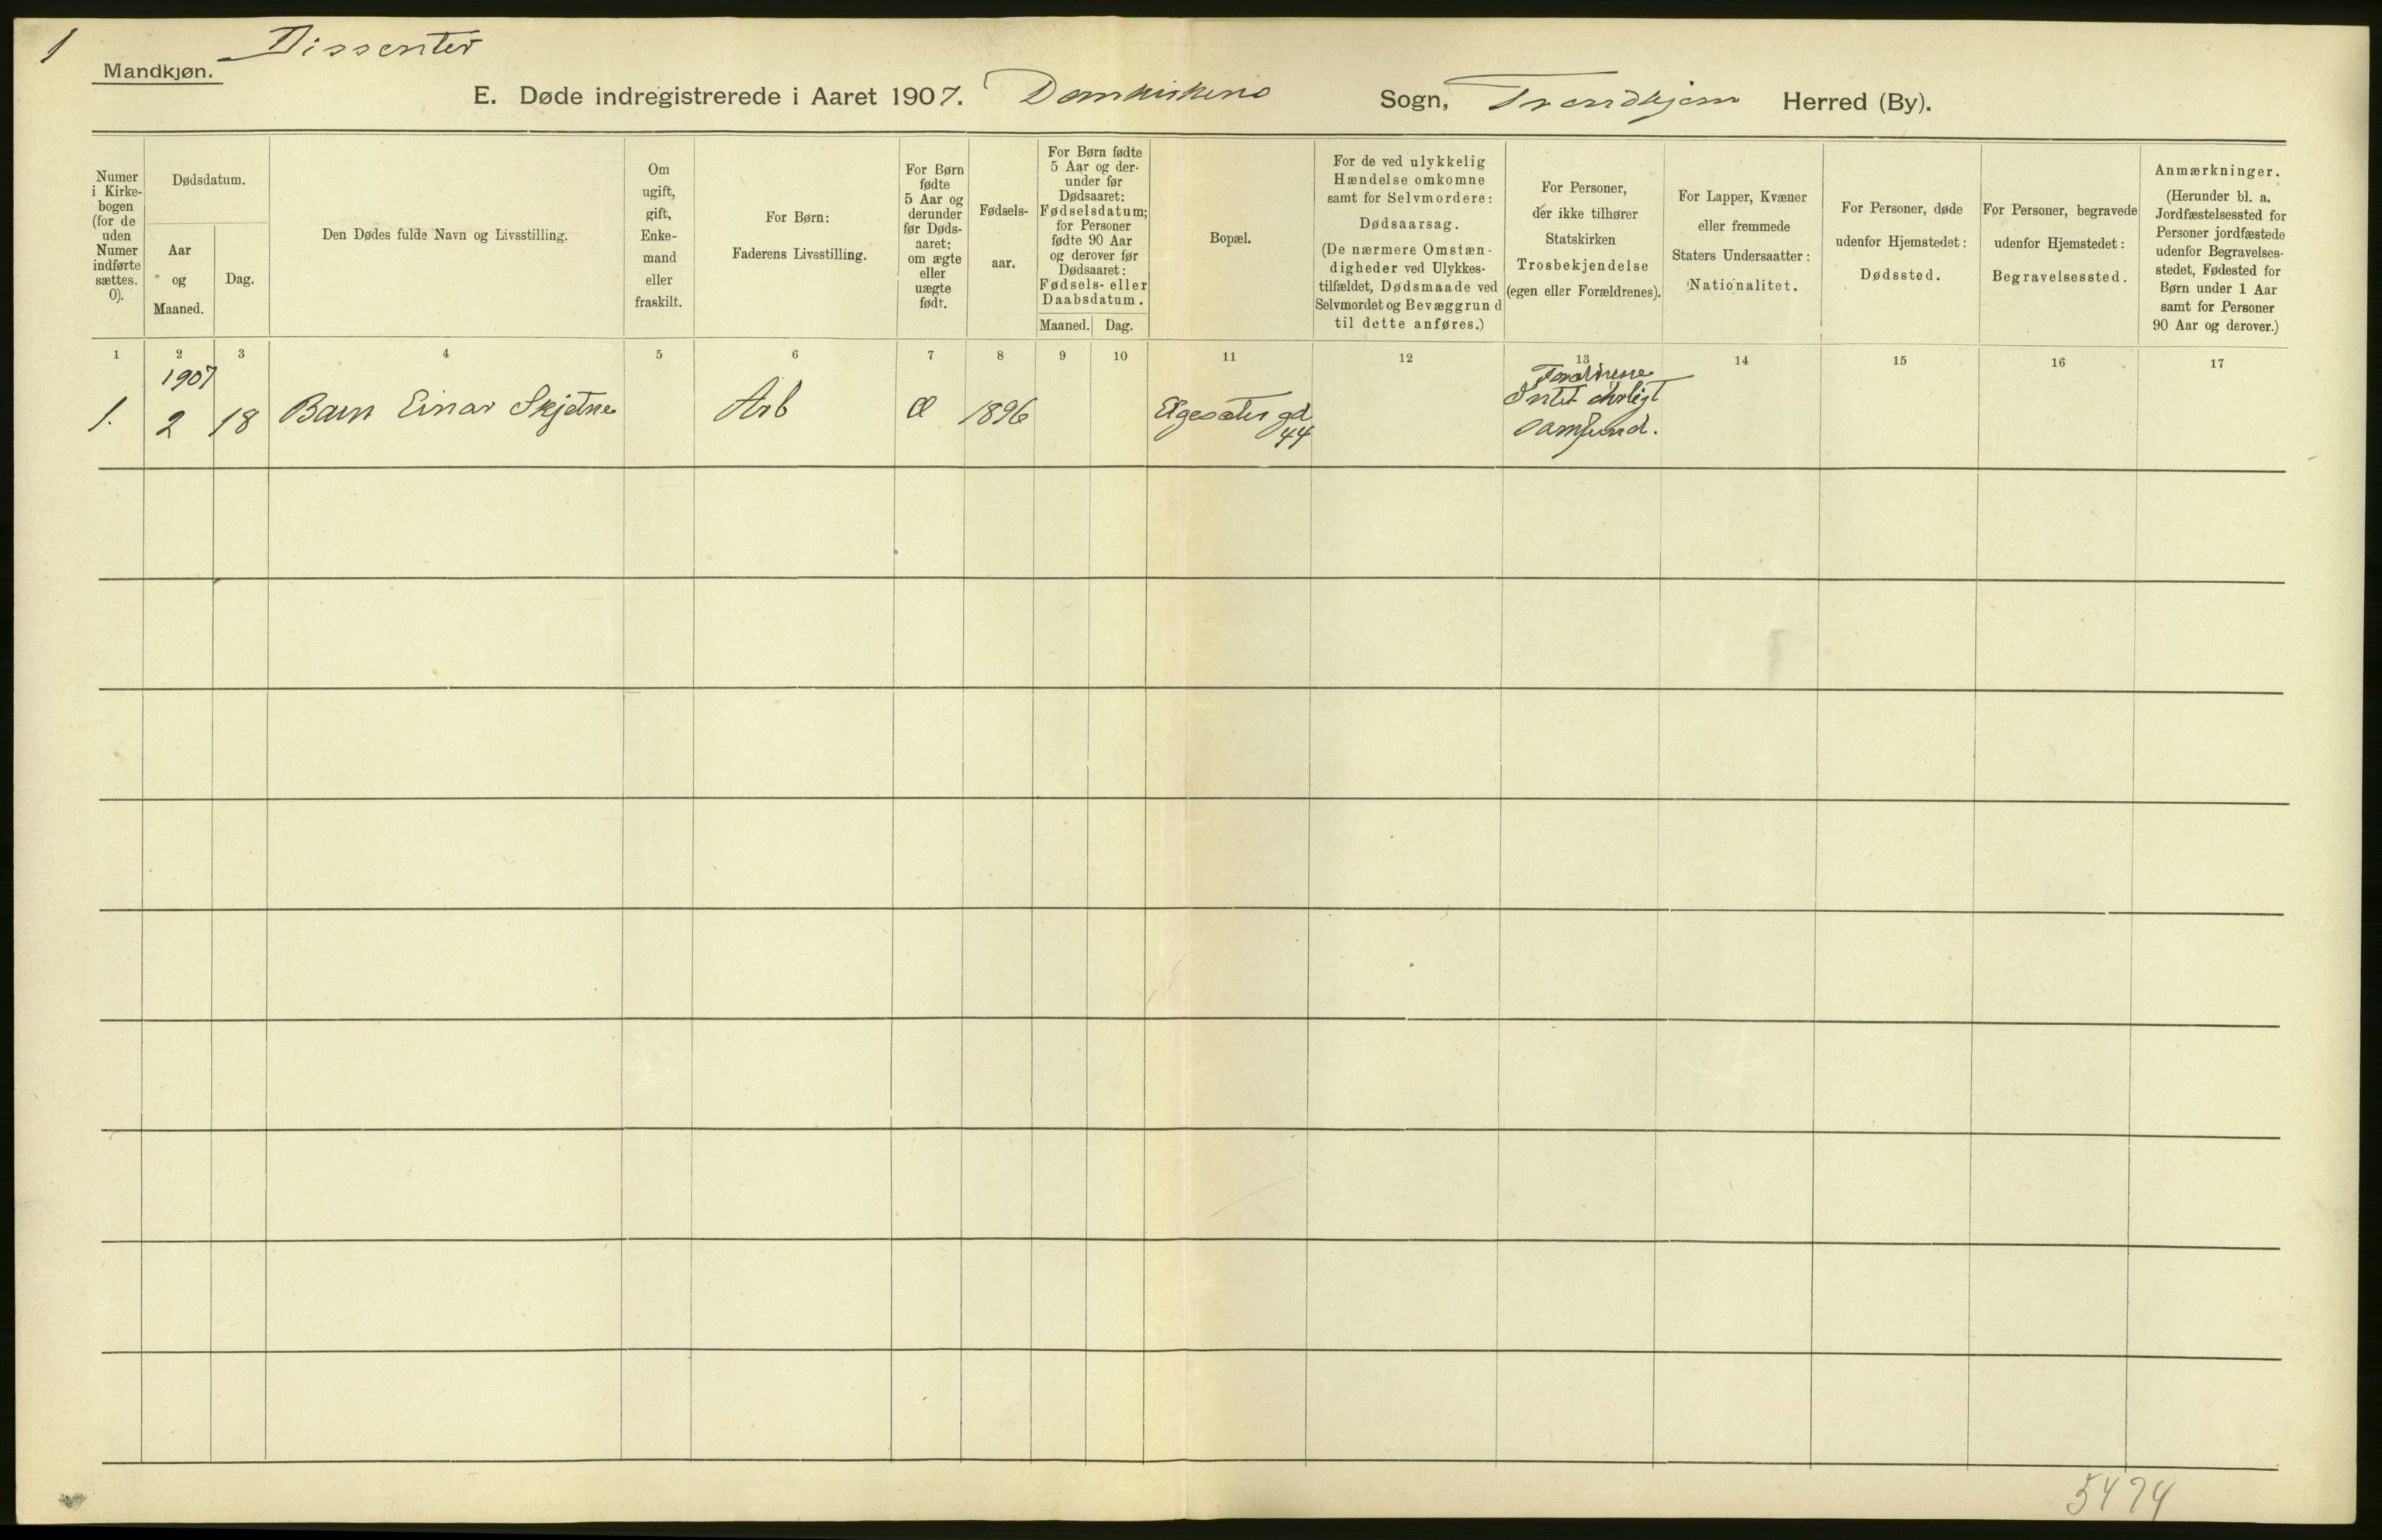 1
Dissenter
Mandkjøn.
E. Døde indregistrerede i Aaret 1907. Domkirkens Sogn, Trondhjem Herred (By).
Numer
i Kirke-
bogen
(for de
uden
Numer
indførte
sættes.
0).
Dødsdatum.
Aar
og
Maaned.
Dag.
Den Dødes fulde Navn og Livsstilling.
Om
ugift,
gift,
Enke-
mand
eller
fraskilt.
For Børn:
Faderens Livsstilling.
For Børn
fødte
5 Aar og
derunder
før Døds-
aaret:
om ægte
eller
uægte
født.
Fødsels-
aar.
For Børn fødte
5 Aar og der-
under før
Dødsaaret:
Fødselsdatum;
for Personer
fødte 90 Aar
og derover før
Dødsaaret:
Fødsels- eller
Daabsdatum.
Maaned. Dag.
Bopæl.
For de ved ulykkelig
Hændelse omkomne
samt for Selvmordere:
Dødsaarsag.
(De nærmere Omstæn-
digheder ved Ulykkes-
tilfældet, Dødsmaade ved
Selvmordet og Bevæggrund
til dette anføres.)
For Personer,
der ikke tilhører
Statskirken
Trosbekjendelse
(egen eller Forældrenes).
For Lapper, Kvæner
eller fremmede
Staters Undersaatter:
Nationalitet.
For Personer, døde
udenfor Hjemstedet:
Dødssted.
For Personer, begravede
udenfor Hjemstedet:
Begravelsessted.
Anmærkninger.
(Herunder bl. a.
Jordfæstelsessted for
Personer jordfæstede
udenfor Begravelses-
stedet, Fødested for
Børn under 1 Aar
samt for Personer
90 Aar og derover.)
1 2 3 4 5 6 7 8 9 10 11 12 13 14 15 16 17
1907
1. 2 18 Barn Einar Skjetne Arb Æ 1896 Elgesæter gd
44
Forældrene
Intet chrligt
samfund.
5474